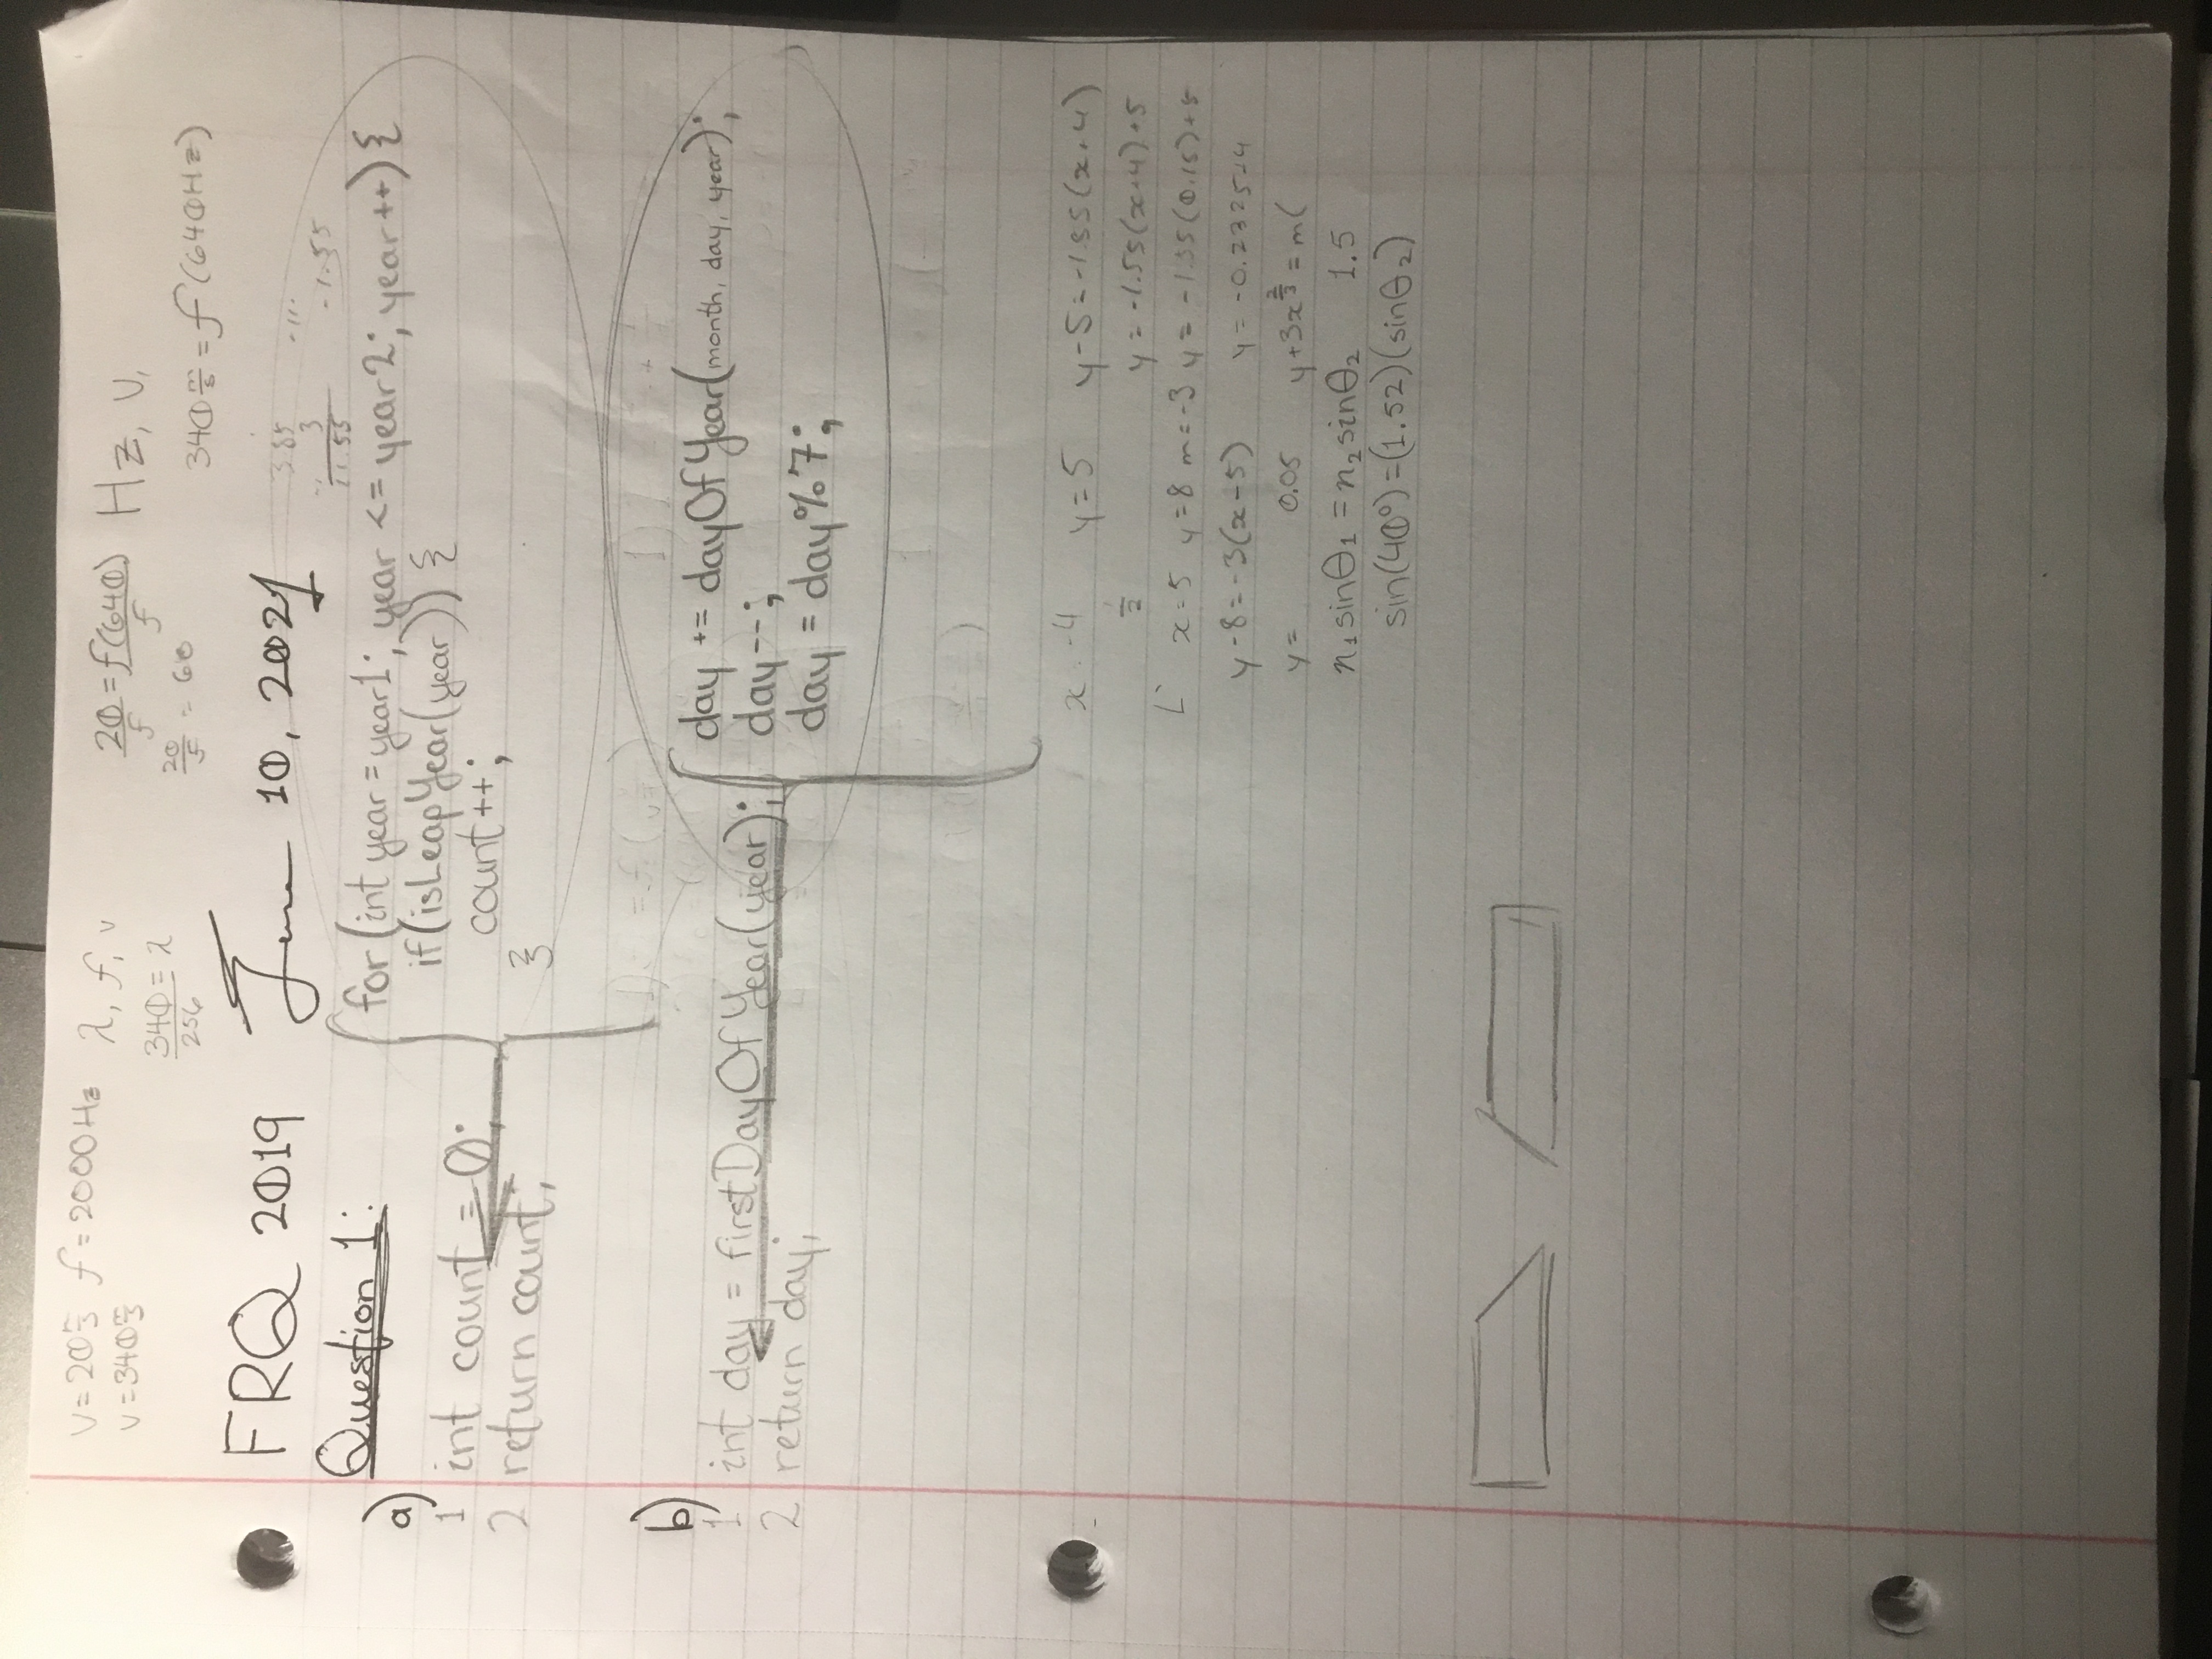 V=20 m/s f=2000Hz
v=340 m/s
λ, f, v
340/256 = λ
20/f = f(640)/f
20/f = 60
Hz, v,
340 m/s = f(640Hz)
FRQ 2019 June 10, 2021
3.85
3
11.55
-1.55
Question 1:
a)
1 int count = 0;
2 return count;
for (int year = year1; year <= year2; year++) {
if (isLeapYear(year)) {
count++;
}
b)
1 int day = firstDayOfYear(year);
2 return day;
day += dayOfYear(month, day, year);
day--;
day = day%7;
x = -4 y = 5 y-5=-1.55(x+4)
1/2 y = -1.55(x+4)+5
L x=5 y=8 m=-3 y = -1.55(0.15)+5
y-8=-3(x-5) y = -0.2325+4
y = 0.05 y+3x^(2/3) = m(
n₁sinθ₁ = n₂sinθ₂ 1.5
sin(40°)=(1.52)(sinθ₂)